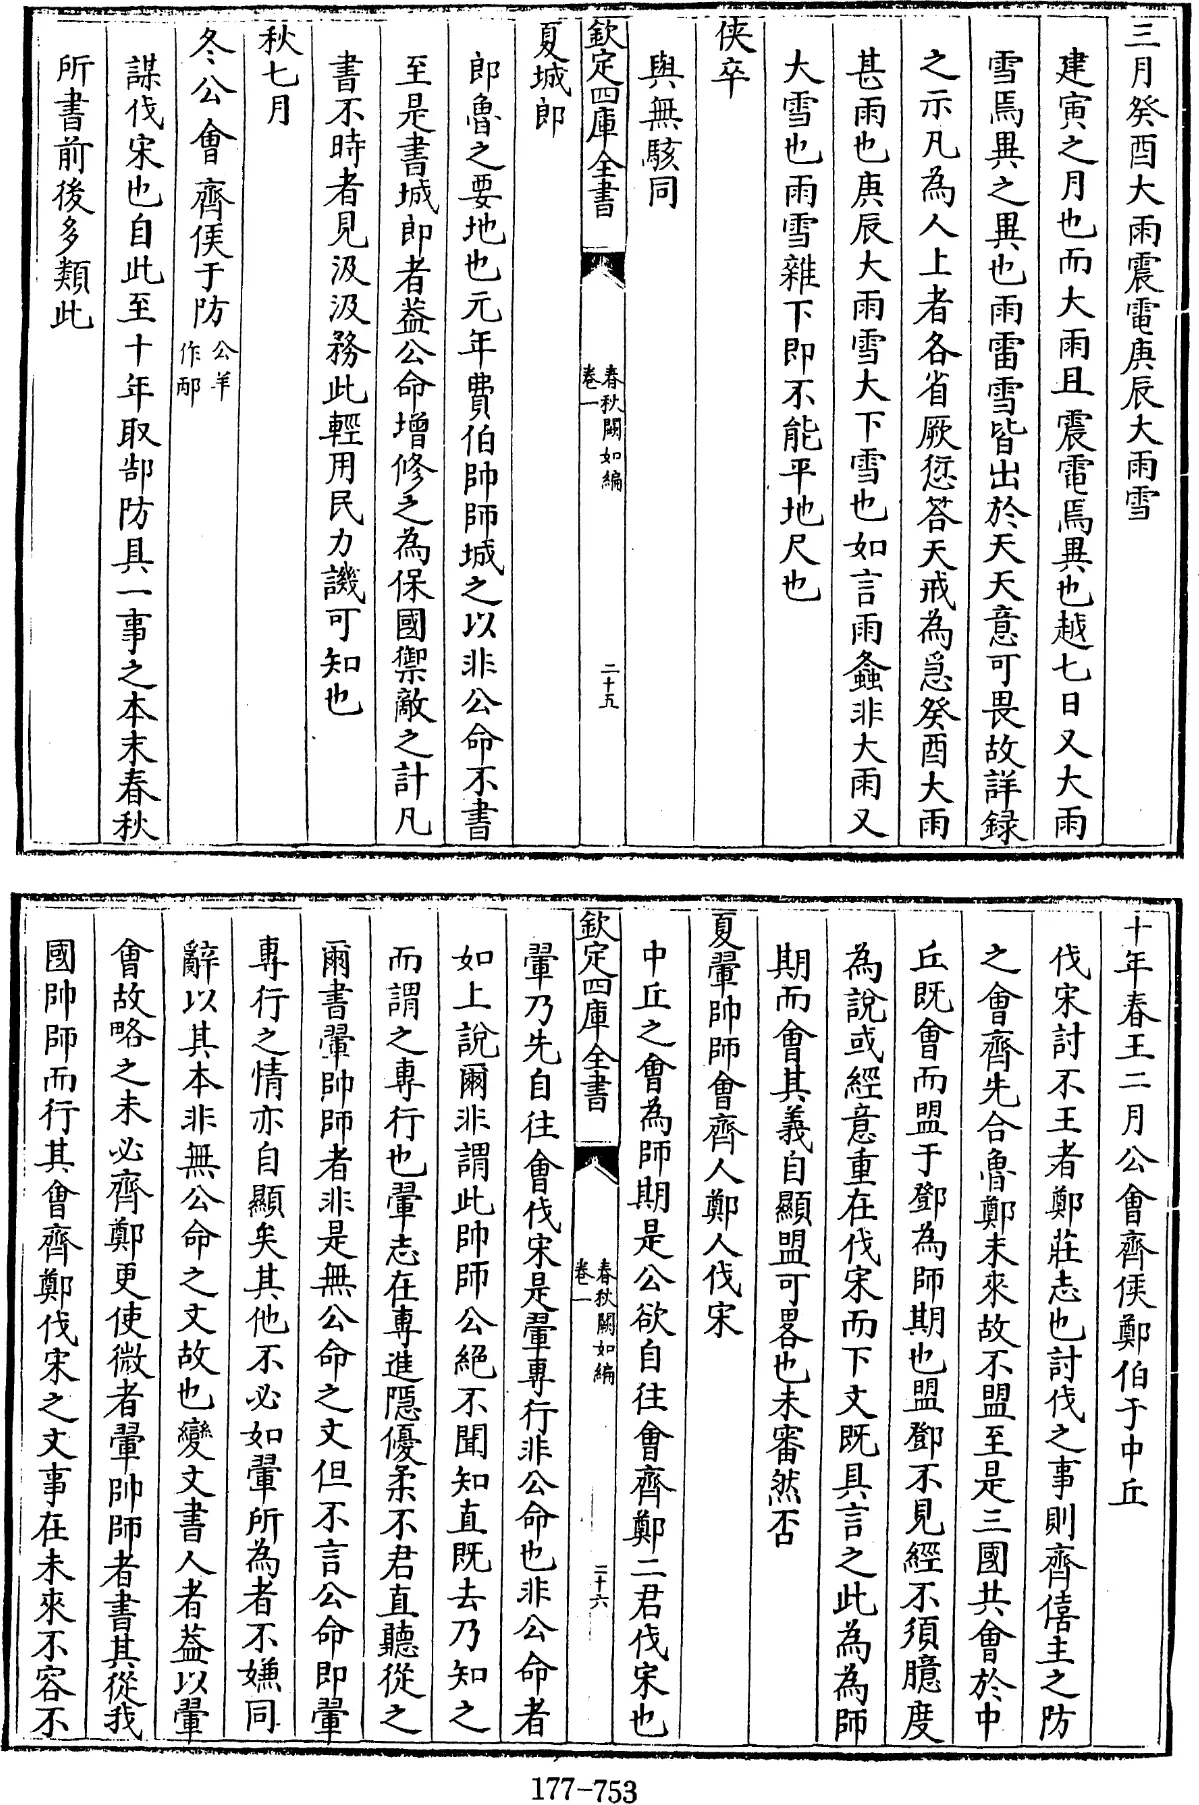 三月癸酉大雨震電庚辰大雨雪
建寅之月也而大雨且震電焉異也越七日又大雨
雪焉異之異也雨雷雪皆出於天天意可畏故詳録
之示凡為人上者各省厥愆答天戒為急癸酉大雨
甚雨也庚辰大雨雪大下雪也如言雨螽非大雨又
大雪也雨雪雜下即不能平地尺也
侠卒
與無駭同
欽定四庫全書
春秋闕如編
卷一
二十五
夏城郎
郎魯之要地也元年費伯帥師城之以非公命不書
至是書城郎者葢公命增修之為保國禦敵之計凡
書不時者見汲汲務此輕用民力譏可知也
秋七月
冬公會齊侯于防公羊作邴
謀伐宋也自此至十年取郜防具一事之本末春秋
所書前後多類此
十年春王二月公會齊侯鄭伯于中丘
伐宋討不王者鄭莊志也討伐之事則齊僖主之防
之會齊先合魯鄭未來故不盟至是三國共會於中
丘既會而盟于鄧為師期也盟鄧不見經不須臆度
為說或經意重在伐宋而下文既具言之此為為師
期而會其義自顯盟可畧也未審然否
夏翬帥師會齊人鄭人伐宋
中丘之會為師期是公欲自往會齊鄭二君伐宋也
欽定四庫全書
春秋闕如編
卷一
二十六
翬乃先自往會伐宋是翬專行非公命也非公命者
如上說爾非謂此帥師公絕不聞知直既去乃知之
而謂之專行也翬志在專進隱優柔不君直聽從之
爾書翬帥師者非是無公命之文但不言公命即翬
專行之情亦自顯矣其他不必如翬所為者不嫌同
辭以其本非無公命之文故也變文書人者葢以翬
會故略之未必齊鄭更使微者翬帥師者書其從我
國帥師而行其會齊鄭伐宋之文事在未來不容不
177-753